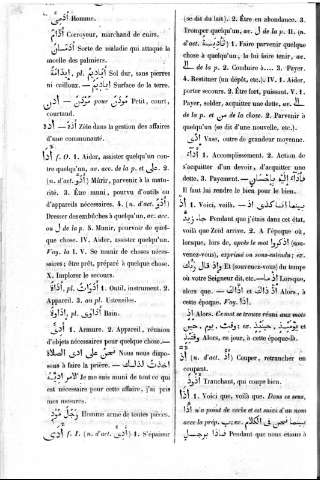 Homme. أَدَمِىّ
Corroyeur, marchand de cuirs. أَدَّام
Sorte de maladie qui attaque la
moelle des palmiers.
Sol dur, sans pierres
ni cailloux. — Surface de la terre.
pour مُوْدَن Petit, court,
courtaud.
Zèle dans la gestion des affaires
d'une communauté.
f. O. 1. Aider, assister quelqu'un con-
tre quelqu'un, av. acc. de la p. et على. 2.
(n. d'act.) Mûrir, parvenir à la matu-
rité. 3. Être muni, pourvu d'outils ou
d'appareils nécessaires. 4. (n. d'act.)
Dresser des embûches à quelqu'un, av. acc.
ou ل de la p. 5. Munir, pourvoir de quel-
que chose. IV. Aider, assister quelqu'un.
Voy. la I. V. Se munir de choses néces-
saires; être prêt, préparé à quelque chose.
X. Implorer le secours.
أَدَاة, pl. أَدَوَات 1. Outil, instrument. 2.
Appareil. 3. au pl. Ustensiles.
Bain.
1. Armure. 2. Appareil, réunion
d'objets nécessaires pour quelque chose.—
نحن على ادى الصلاة Nous nous dispo-
sons à faire la prière. — اخذت لذلك
Je me suis muni de tout ce qui
est nécessaire pour cette affaire, j'ai pris
mes mesures.
رجل مود Homme armé de toutes pièces.
أدى f. I. (n. d'act.) 1. S'épaissir
(se dit du lait). 2. Être en abondance. 3.
Tromper quelqu'un, av. acc. ou ل de la p. II. (n.
d'act. تأدية) 1. Faire parvenir quelque
chose à quelqu'un, la lui faire tenir, av.
de la p. 2. Conduire à.... 3. Payer.
4. Restituer (un dépôt, etc.). IV. 1. Aider,
porter secours. 2. Être fort, puissant. V. 1.
Payer, solder, acquitter une dette, av. الى
de la p. et من de la chose. 2. Parvenir à
quelqu'un (se dit d'une nouvelle, etc.).
Vase, outre de grandeur moyenne.
أَدَاء 1. Accomplissement. 2. Action de
s'acquitter d'un devoir, d'acquitter une
dette. 3. Payement. —
Il faut lui rendre le bien pour le bien.
إذ 1. Voici, voilà. — بينما انا كذى اذ
جاء زيد Pendant que j'étais dans cet état,
voilà que Zeïd arrive. 2. A l'époque où,
lorsque, lors de, après le mot اذكروا (sou-
venez-vous), exprimé ou sous-entendu; ex.
واذ قال ربك Et (souvenez-vous) du temps
où votre Seigneur dit, etc.— اذ ما Lorsque,
alors que. — اذذاك et اذاك Alors, à
cette époque. Voy. اذا.
Alors. Ce mot se trouve réuni aux mots
حين, يوم, وقت; ex. حينئذ, يومئذ et
Alors, ce jour, à cette époque-là.
أذّ (n. d'act. أذّ) Couper, retrancher en
coupant.
أذوذ Tranchant, qui coupe bien.
إذا 1. Voici que, voilà que. Dans ce sens,
اذا n'a point de verbe et est suivi d'un nom
avec la prép. ب; ex. بينما نحن فى الكلام
فاذا برجل Pendant que nous étions à